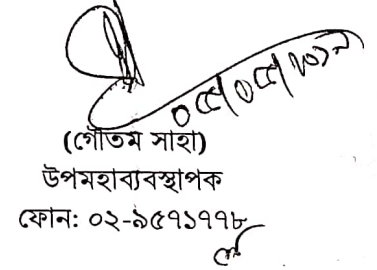 ০৫/০৫/২০১৯
(গৌতম সাহা)
উপমহাব্যবস্থাপক
ফোন: ০২-৯৫৭১৭৭৮